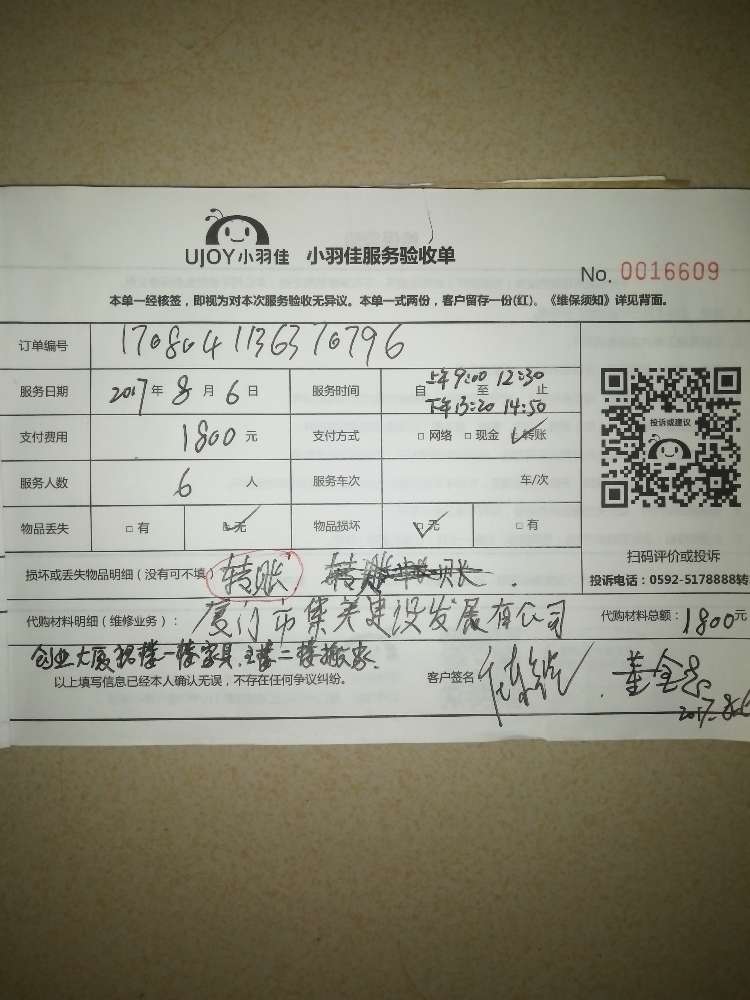 UJOY小羽佳 小羽佳服务验收单
No. 0016609
本单一经核签，即视为对本次服务验收无异议。本单一式两份，客户留存一份(红)。《维保须知》详见背面。
订单编号 1708041136370796
服务日期 2017年8月6日 服务时间 自 上午9:00 至 12:30 止
下午13:20 14:50
支付费用 1800元 支付方式 □网络 □现金 ☑转账
投诉或建议
服务人数 6人 服务车次 车/次
物品丢失 □有 ☑无 物品损坏 ☑无 □有
扫码评价或投诉
损坏或丢失物品明细（没有可不填） 转账
投诉电话：0592-5178888转
代购材料明细（维修业务）： 厦门市集美建设发展有限公司 代购材料总额：1800元
创业大厦 楼一楼家具，主楼二楼搬家.
以上填写信息已经本人确认无误，不存在任何争议纠纷。 客户签名
2017.8.6